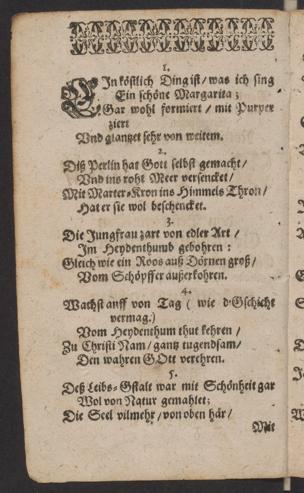 1.
EIn köstlich Ding ist / was ich sing
Ein schöne Margarita;
Gar wohl formiert / mit Purper
ziert
Vnd glantzet sehr von weitem.
2.
Diß Perlin hat Gott selbst gemacht /
Vnd ins roht Meer versencket /
Mit Marter-Kron ins Himmels Thron /
Hat er sie wol beschencket.
3.
Die Jungfrau zart von edler Art /
Im Heydenthumb gebohren :
Gleich wie ein Roos auß Dörnen groß /
Vom Schöpffer außerkohren.
4.
Wachst auff von Tag ( wie d'Gschicht
vermag.)
Vom Heydenthum thut kehren /
Zu Christi Nam / gantz tugendsam /
Den wahren GOtt verehren.
5.
Deß Leibs-Gstalt war mit Schönheit gar
Wol von Natur gemahlet;
Die Seel vilmehr / von oben här /
Mit